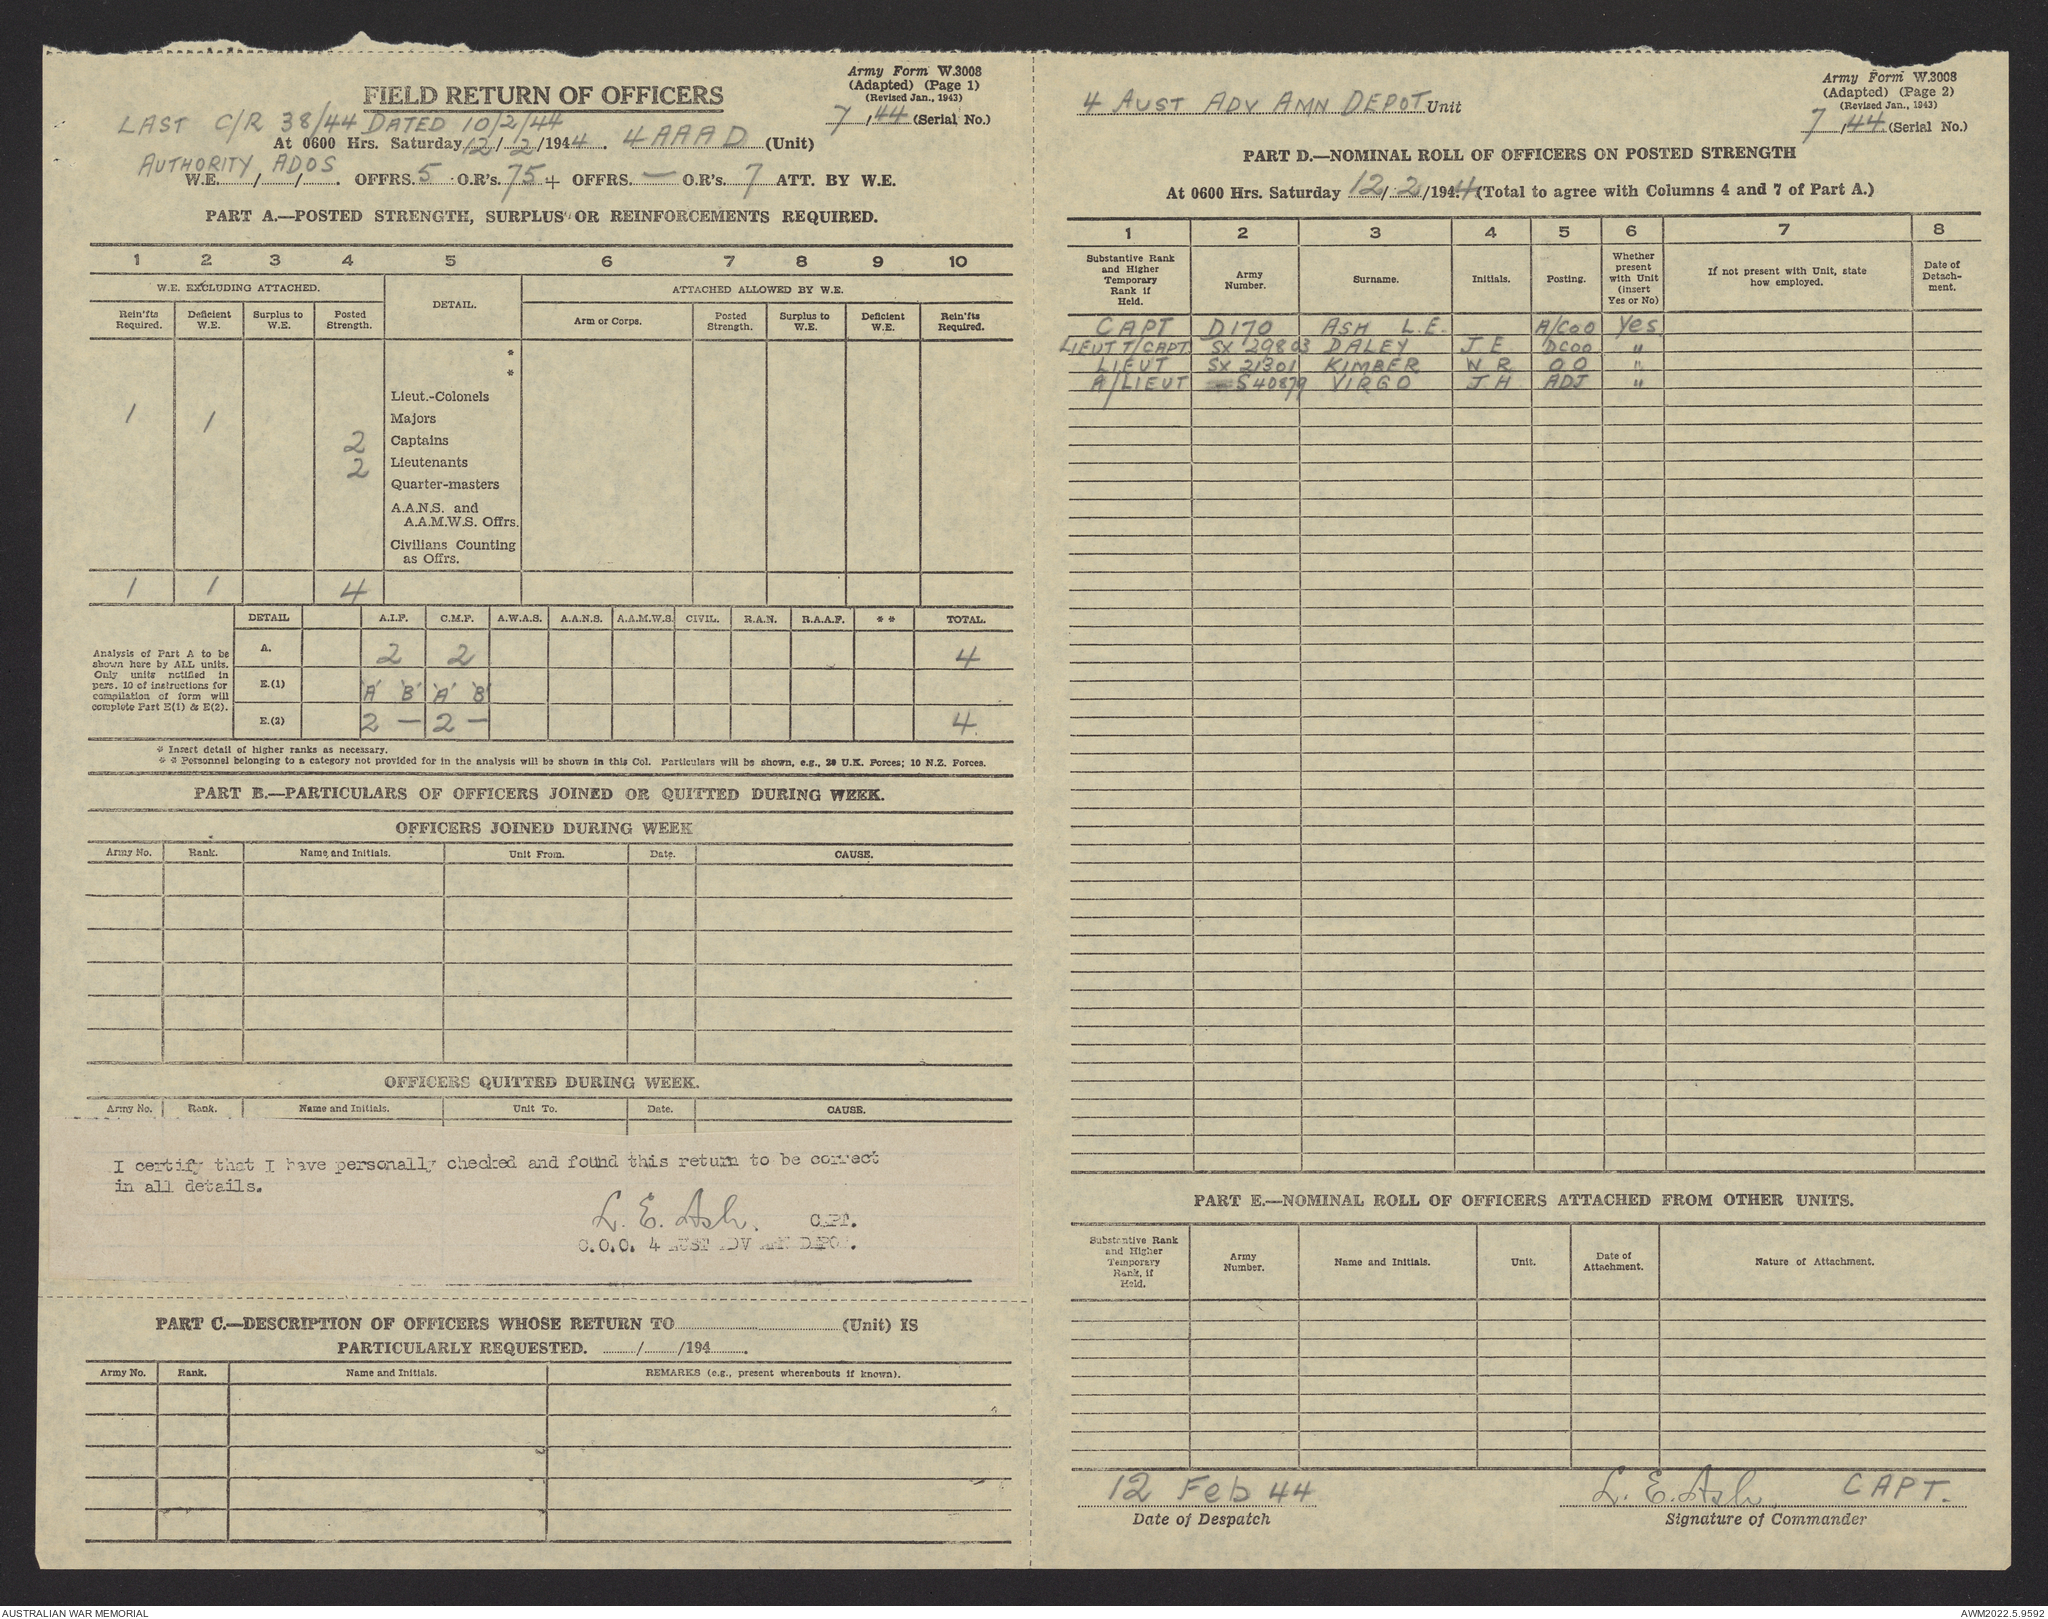 Army Form W.3008
(Adapted) (Page 1)
(Revised Jan., 1943)
FIELD RETURN OF OFFICERS
7/44 (Serial No.)
LAST C/R 38/44 DATED 10/2/44
At 0600 Hrs. Saturday 12/2/1944. 4 AAAD (Unit)
AUTHORITY ADOS
W.E. / / . OFFRS. 5 O.R's. 75 + OFFRS. — O.R's. 7 ATT. BY W.E.
PART A.—POSTED STRENGTH, SURPLUS OR REINFORCEMENTS REQUIRED.
1 2 3 4 5 6 7 8 9 10
W.E. EXCLUDING ATTACHED. DETAIL. ATTACHED ALLOWED BY W.E.
Rein'fts Required. Deficient W.E. Surplus to W.E. Posted Strength. Arm or Corps. Posted Strength. Surplus to W.E. Deficient W.E. Rein'fts Required.
*
*
Lieut.-Colonels
1 1 Majors
2 Captains
2 Lieutenants
Quarter-masters
A.A.N.S. and
A.A.M.W.S. Offrs.
Civilians Counting
as Offrs.
1 1 4
DETAIL A.I.F. C.M.F. A.W.A.S. A.A.N.S. A.A.M.W.S. CIVIL. R.A.N. R.A.A.F. * * TOTAL.
Analysis of Part A to be
shown here by ALL units.
Only units notified in
para. 10 of instructions for
compilation of form will
complete Part E(1) & E(2).
A. 2 2 4
E.(1) 'A' 'B' 'A' 'B'
E.(2) 2 — 2 — 4
* Insert detail of higher ranks as necessary.
* * Personnel belonging to a category not provided for in the analysis will be shown in this Col. Particulars will be shown, e.g., 20 U.K. Forces; 10 N.Z. Forces.
PART B.—PARTICULARS OF OFFICERS JOINED OR QUITTED DURING WEEK.
OFFICERS JOINED DURING WEEK
Army No. Rank. Name and Initials. Unit From. Date. CAUSE.
OFFICERS QUITTED DURING WEEK.
Army No. Rank. Name and Initials. Unit To. Date. CAUSE.
I certify that I have personally checked and found this return to be correct
in all details.
L. E. Ash. CAPT.
C.O.O. 4 AUST ADV AMN DEPOT.
PART C.—DESCRIPTION OF OFFICERS WHOSE RETURN TO (Unit) IS
PARTICULARLY REQUESTED. / /194 .
Army No. Rank. Name and Initials. REMARKS (e.g., present whereabouts if known).
Army Form W.3008
(Adapted) (Page 2)
(Revised Jan., 1943)
4 AUST ADV AMN DEPOT Unit
7/44 (Serial No.)
PART D.—NOMINAL ROLL OF OFFICERS ON POSTED STRENGTH
At 0600 Hrs. Saturday 12/2/1944 (Total to agree with Columns 4 and 7 of Part A.)
1 2 3 4 5 6 7 8
Substantive Rank and Higher Temporary Rank if Held. Army Number. Surname. Initials. Posting. Whether present with Unit (insert Yes or No) If not present with Unit, state how employed. Date of Detachment.
CAPT D170 ASH L.E. A/COO Yes
LIEUT T/CAPT SX 29803 DALEY J E DCOO "
LIEUT SX 21301 KIMBER W R OO "
A/LIEUT S40879 VIRGO J H ADJ "
PART E.—NOMINAL ROLL OF OFFICERS ATTACHED FROM OTHER UNITS.
Substantive Rank and Higher Temporary Rank, if Held. Army Number. Name and Initials. Unit. Date of Attachment. Nature of Attachment.
12 Feb 44 L. E. Ash CAPT.
Date of Despatch Signature of Commander
AUSTRALIAN WAR MEMORIAL AWM2022.5.9592